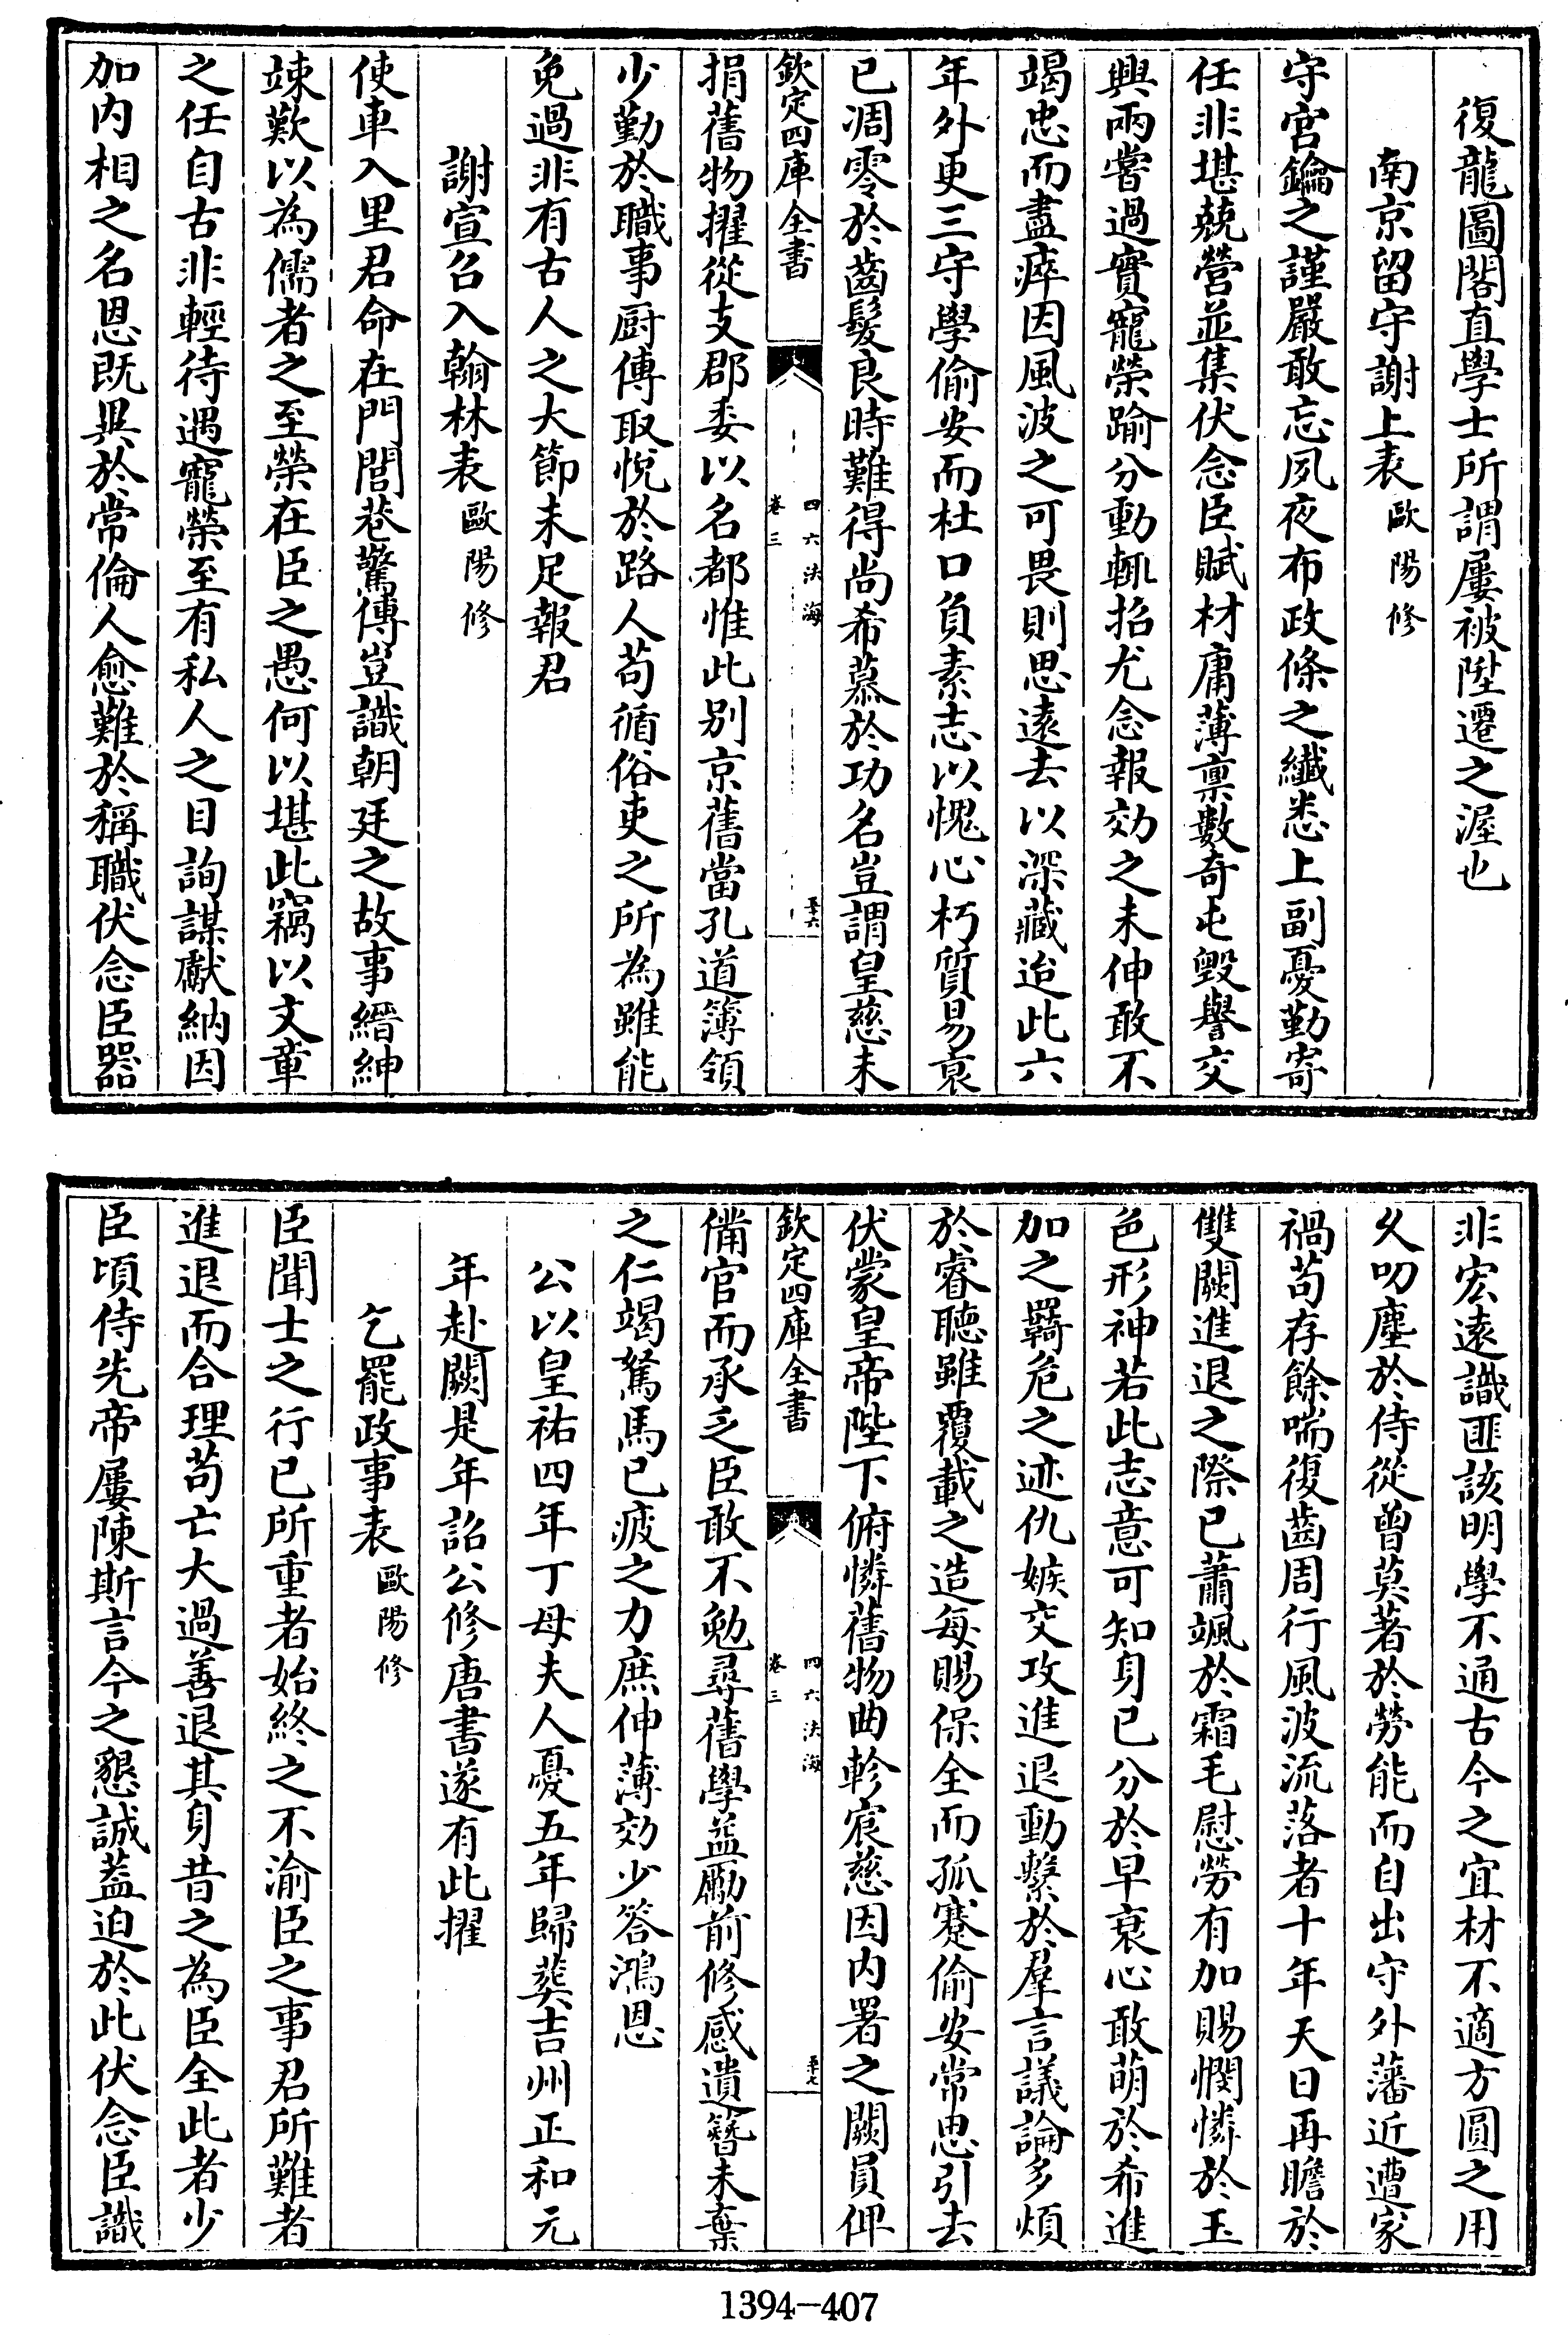 復龍圖閣直學士所謂屢被陞遷之渥也
南京留守謝上表歐陽修
守宮鑰之謹嚴敢忘夙夜布政條之纖悉上副憂勤寄
任非堪兢營並集伏念臣賦材庸薄禀數奇屯毀譽交
興兩嘗過實寵榮踰分動輒招尤念報効之未伸敢不
竭忠而盡瘁因風波之可畏則思遠去以深藏迨此六
年外更三守學偷安而杜口負素志以愧心朽質易衰
已凋零於齒髮良時難得尚希慕於功名豈謂皇慈未
欽定四庫全書
四六法海
卷三
五十六
捐舊物擢從支郡委以名都惟此别京舊當孔道簿領
少勤於職事厨傳取悅於路人苟循俗吏之所為雖能
免過非有古人之大節未足報君
謝宣召入翰林表歐陽修
使車入里君命在門閭巷驚傳豈識朝廷之故事縉紳
竦歎以為儒者之至榮在臣之愚何以堪此竊以文章
之任自古非輕待遇寵榮至有私人之目詢謀獻納因
加内相之名恩既異於常倫人愈難於稱職伏念臣器
非宏遠識匪該明學不通古今之宜材不適方圓之用
久叨塵於侍從曾莫著於勞能而自出守外藩近遭家
禍苟存餘喘復齒周行風波流落者十年天日再瞻於
雙闕進退之際已蕭颯於霜毛慰勞有加賜憫憐於玉
色形神若此志意可知身已分於早衰心敢萌於希進
加之羇危之迹仇嫉交攻進退動繫於羣言議論多煩
於睿聽雖覆載之造每賜保全而孤蹇偷安常思引去
伏蒙皇帝陛下俯憐舊物曲軫宸慈因内署之闕員俾
欽定四庫全書
四六法海
卷三
五十七
備官而承乏臣敢不勉尋舊學益勵前修感遺簪未棄
之仁竭駑馬已疲之力庶伸薄効少答鴻恩
公以皇祐四年丁母夫人憂五年歸葬吉州正和元
年赴闕是年詔公修唐書遂有此擢
乞罷政事表歐陽修
臣聞士之行已所重者始終之不渝臣之事君所難者
進退而合理苟亡大過善退其身昔之為臣全此者少
臣頃侍先帝屢陳斯言今之懇誠葢迫於此伏念臣識
1394-407